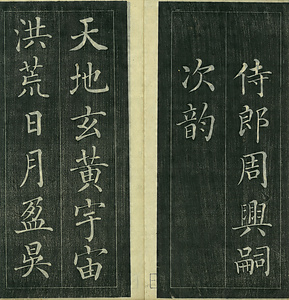 侍郎周興嗣
次韵
天地玄黃宇宙
洪荒日月盈昃